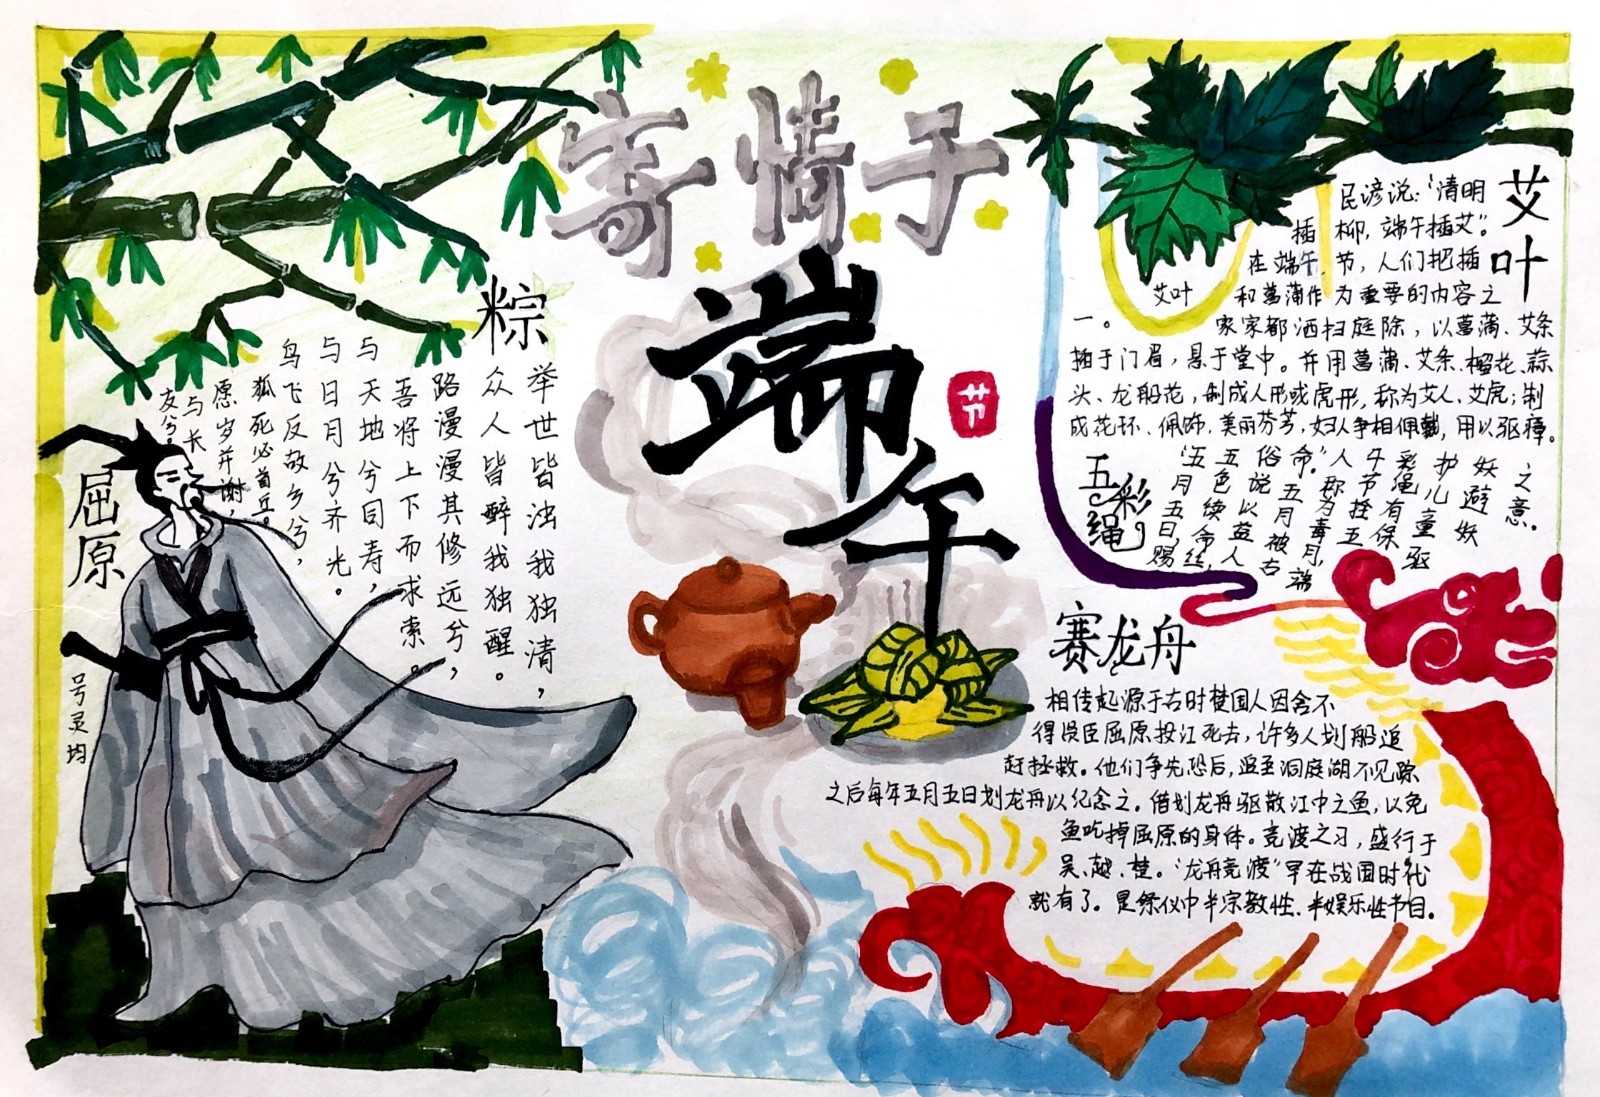 寄情于
端午
节
粽
举世皆浊我独清，
众人皆醉我独醒。
路漫漫其修远兮，
吾将上下而求索。
与天地兮同寿，
与日月兮齐光。
鸟飞反故乡兮，
狐死必首丘。
愿岁并谢，
与长
友兮。
屈原
号灵均
艾叶
民谚说：“清明
插柳，端午插艾”。
在端午节，人们把插
艾叶
和菖蒲作为重要的内容之
一。 家家都洒扫庭除，以菖蒲、艾条
插于门眉，悬于堂中。并用菖蒲、艾条、榴花、蒜
头、龙船花，制成人形或虎形，称为艾人、艾虎；制
成花环、佩饰，美丽芬芳，妇人争相佩戴，用以驱瘴。
五彩绳
“五月五日赐
五色续命丝，
俗说以益人
命。”五月被古
人称为毒月，端
午节拴五
彩绳有保
护儿童驱
妖避妖
之意。
赛龙舟
相传起源于古时楚国人因舍不
得臣屈原投江死去，许多人划船追
赶拯救。他们争先恐后，追至洞庭湖不见踪
之后每年五月五日划龙舟以纪念之。借划龙舟驱散江中之鱼，以免
鱼吃掉屈原的身体。竞渡之习，盛行于
吴、越、楚。“龙舟竞渡”早在战国时代
就有了。是祭仪中半宗教性、半娱乐性节目。